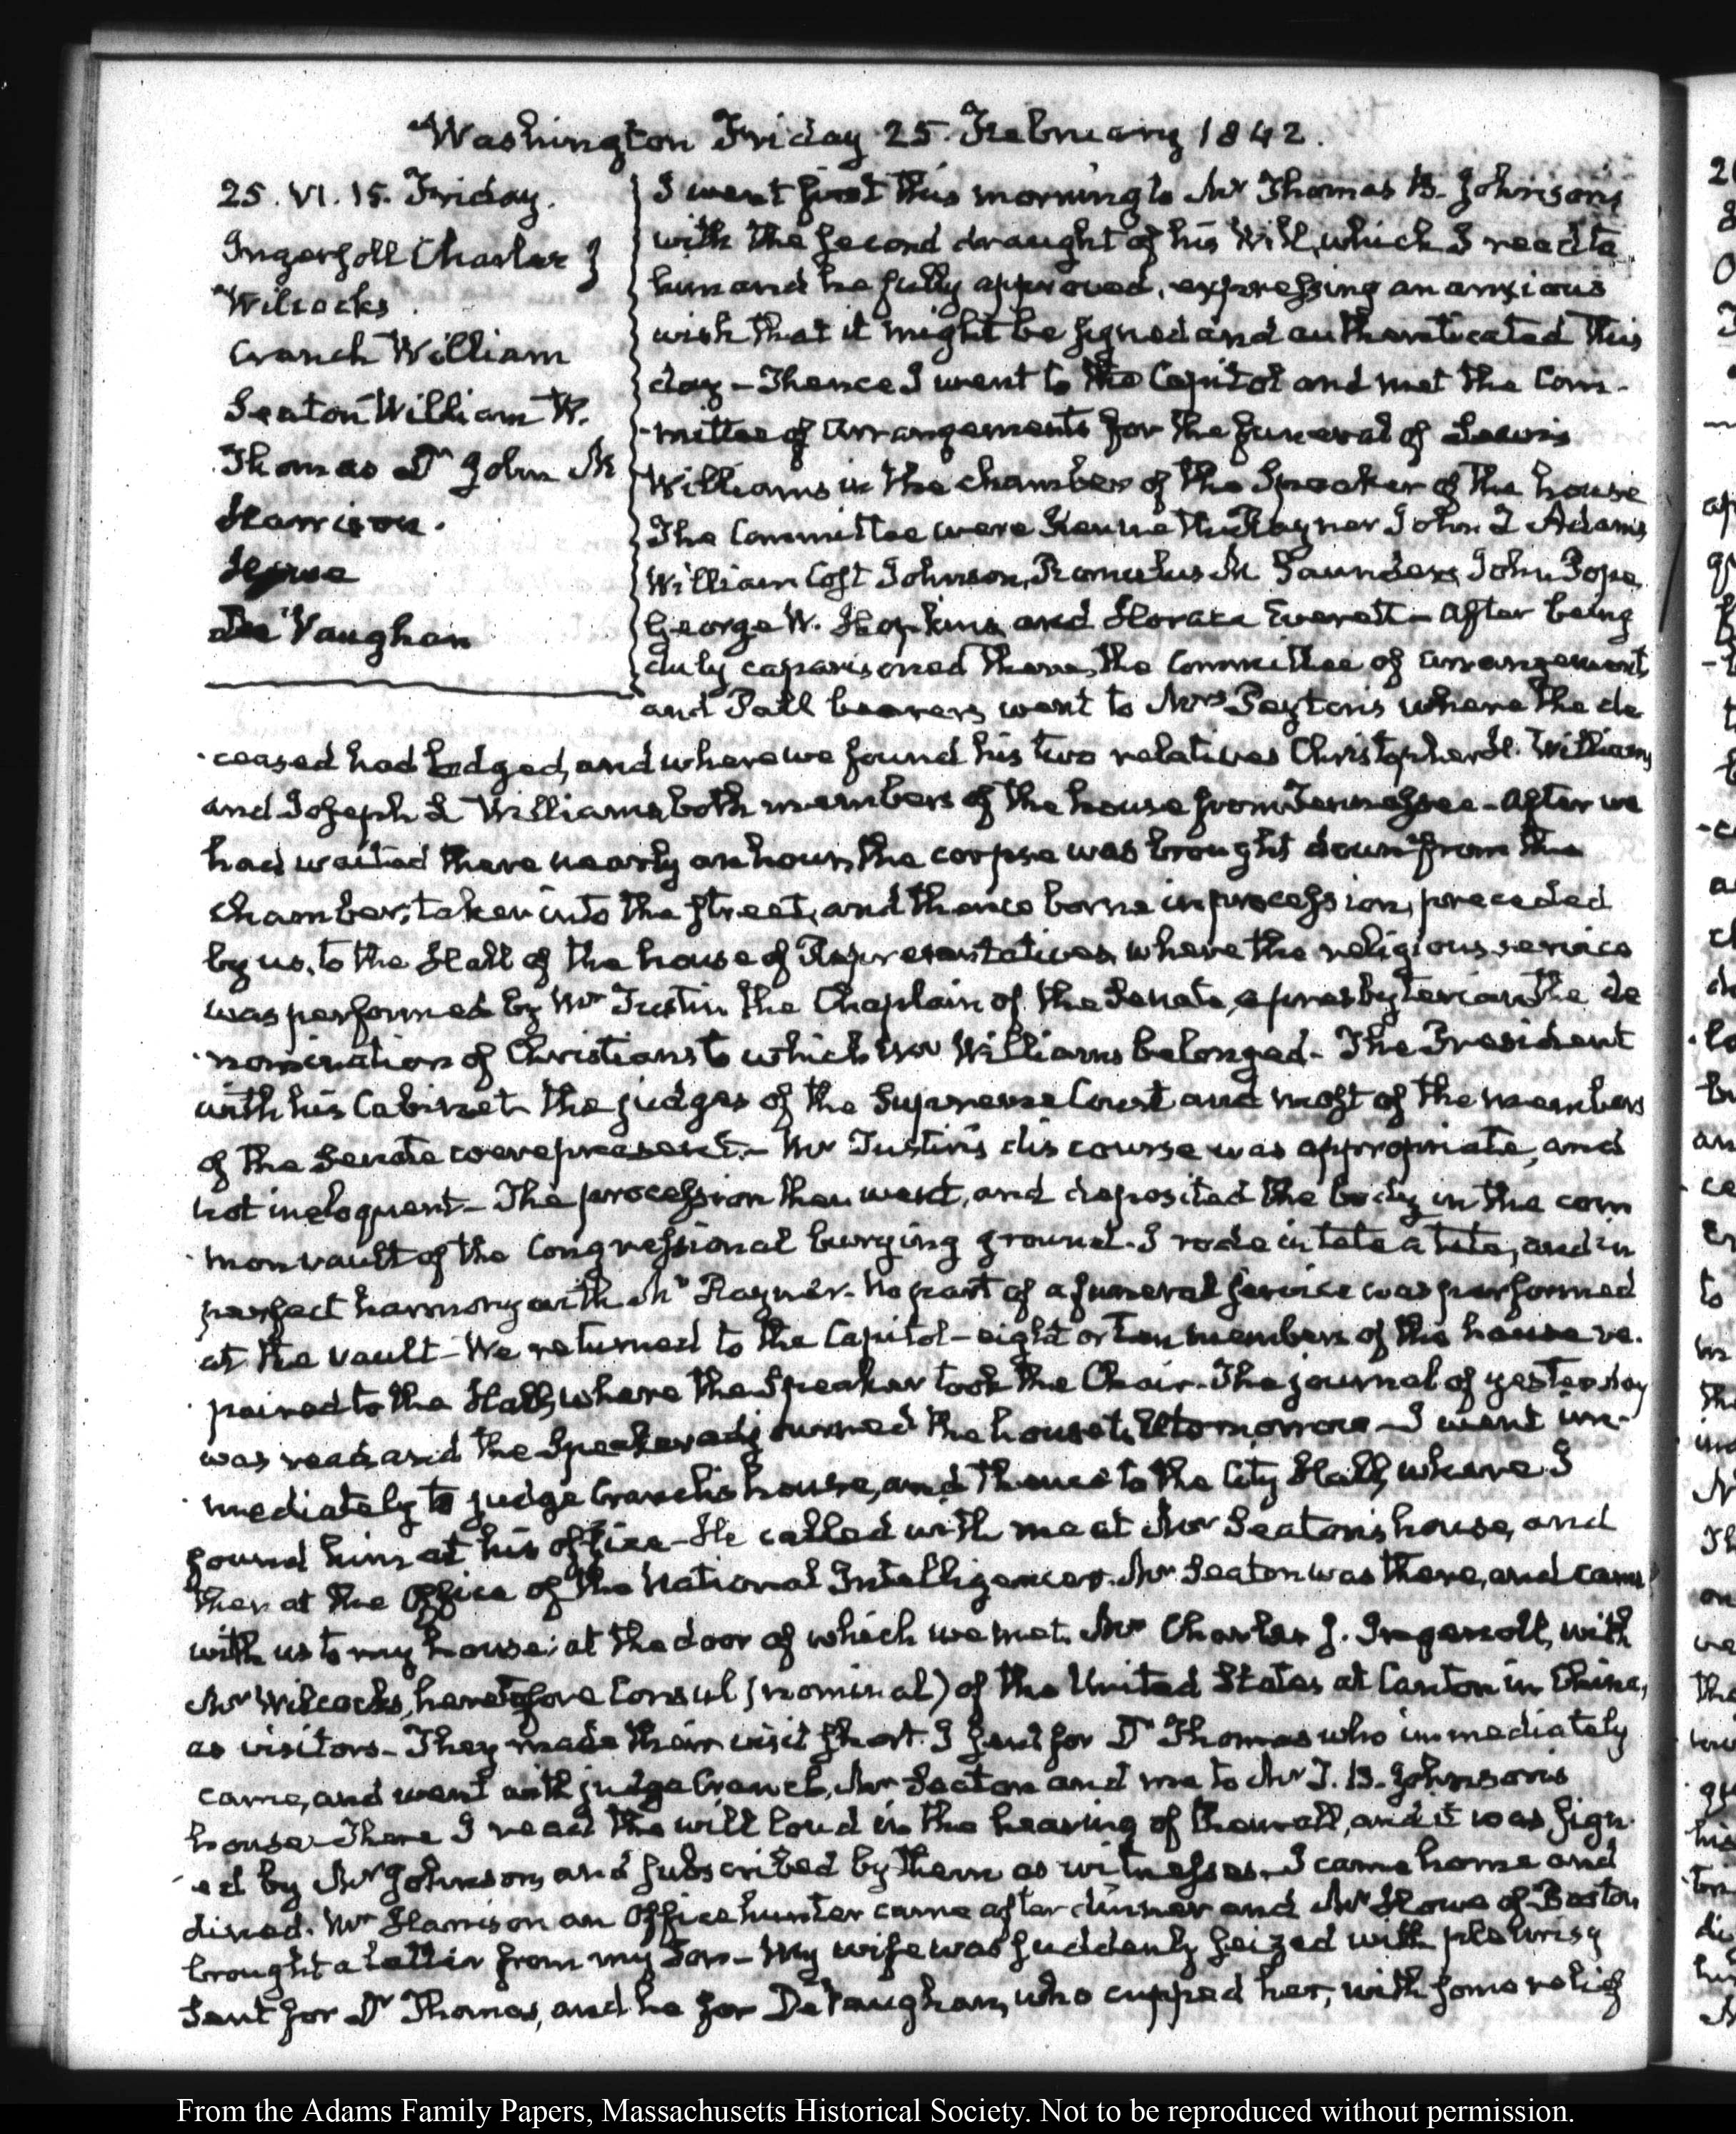 Washington Friday 25. February 1842.
25. VI. 15. Friday.
Ingersoll Charles J
Wilcocks
Cranch William
Seaton William W.
Thomas Dr John M
Harrison.
De Vaughan
I went first this morning to Mr Thomas B. Johnson's
with the second draught of his Will, which I read to
him and he fully approved, expressing an anxious
wish that it might be signed and authenticated this
day – Thence I went to the Capitol and met the Com-
-mittee of Arrangements for the funeral of Lewis
Williams in the chamber of the Speaker of the house
The Committee were Kenneth Rayner John Q Adams
William Cost Johnson, Romulus M Saunders, John Pope
George W. Hopkins and Horace Everett – After being
duly caparisoned there, the Committee of arrangements
and Pall bearers, went to Mrs Peyton's where the de
-ceased had lodged, and where we found his two relatives Christopher H. Williams
and Joseph L Williams, both members of the house from Tennessee – After we
had waited there nearly an hour, the corpse was brought down from the
chamber, taken into the street, and thence borne in procession, preceded
by us, to the Hall of the house of Representatives, where the religious service
was performed by Mr Tustin the Chaplain of the Senate, a presbyterian, the de
-nomination of Christians to which Mr Williams belonged – The President
with his Cabinet, the judges of the Supreme Court and most of the members
of the Senate were present. – Mr Tustin's discourse was appropriate, and
not ineloquent – The procession then went, and deposited the body in the com
-mon vault of the Congressional burying ground. I rode in tete a tete, and in
perfect harmony with Mr Rayner. No part of a funeral service was performed
at the vault – We returned to the Capitol – eight or ten members of the house re-
-paired to the Hall, where the Speaker took the Chair. The journal of yesterday
was read, and the Speaker adjourned the house till tomorrow – I went im-
-mediately to judge Cranch's house, and thence to the City Hall, where I
found him at his office – He called with me at Mr Seaton's house, and
then at the Office of the National Intelligencer. Mr Seaton was there, and came
with us to my house; at the door of which we met Mr Charles J. Ingersoll, with
Mr Wilcocks, heretofore Consul (nominal) of the United States at Canton in China,
as visitors – They made their visit short. I sent for Dr Thomas who immediately
came, and went with judge Cranch, Mr Seaton and me to Mr T. B. Johnson's
house. There I read the will loud in the hearing of them all, and it was sign-
-ed by Mr Johnson, and subscribed by them as witnesses. I came home and
dined. Mr Harrison an Office hunter came after dinner and Mr Howe of Boston
brought a letter from my Son – My wife was suddenly seized with pleurisy
Sent for Dr Thomas, and he for De Vaughan, who cupped her, with some relief
From the Adams Family Papers, Massachusetts Historical Society. Not to be reproduced without permission.